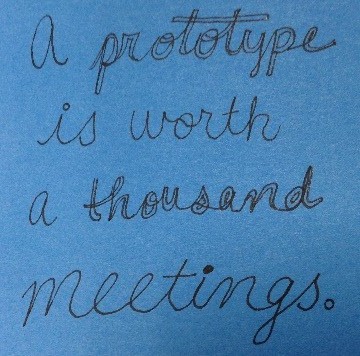 A prototype
is worth
a thousand
meetings.